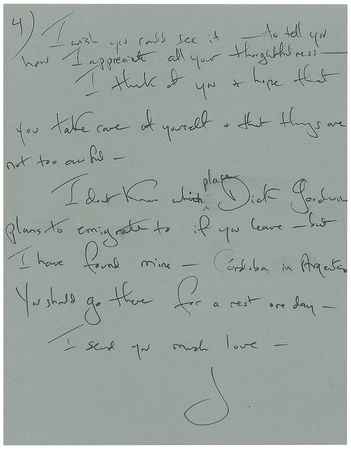 4) I wish you could see it — to tell you
how I appreciate all your thoughtfulness —
I think of you + hope that
you take care of yourself + that things are
not too awful —
place
I dont know which Dick Goodwin
plans to emigrate to if you leave — but
I have found mine — Cordoba in Argentina
You should go there for a rest one day —
I send you much love —
J.